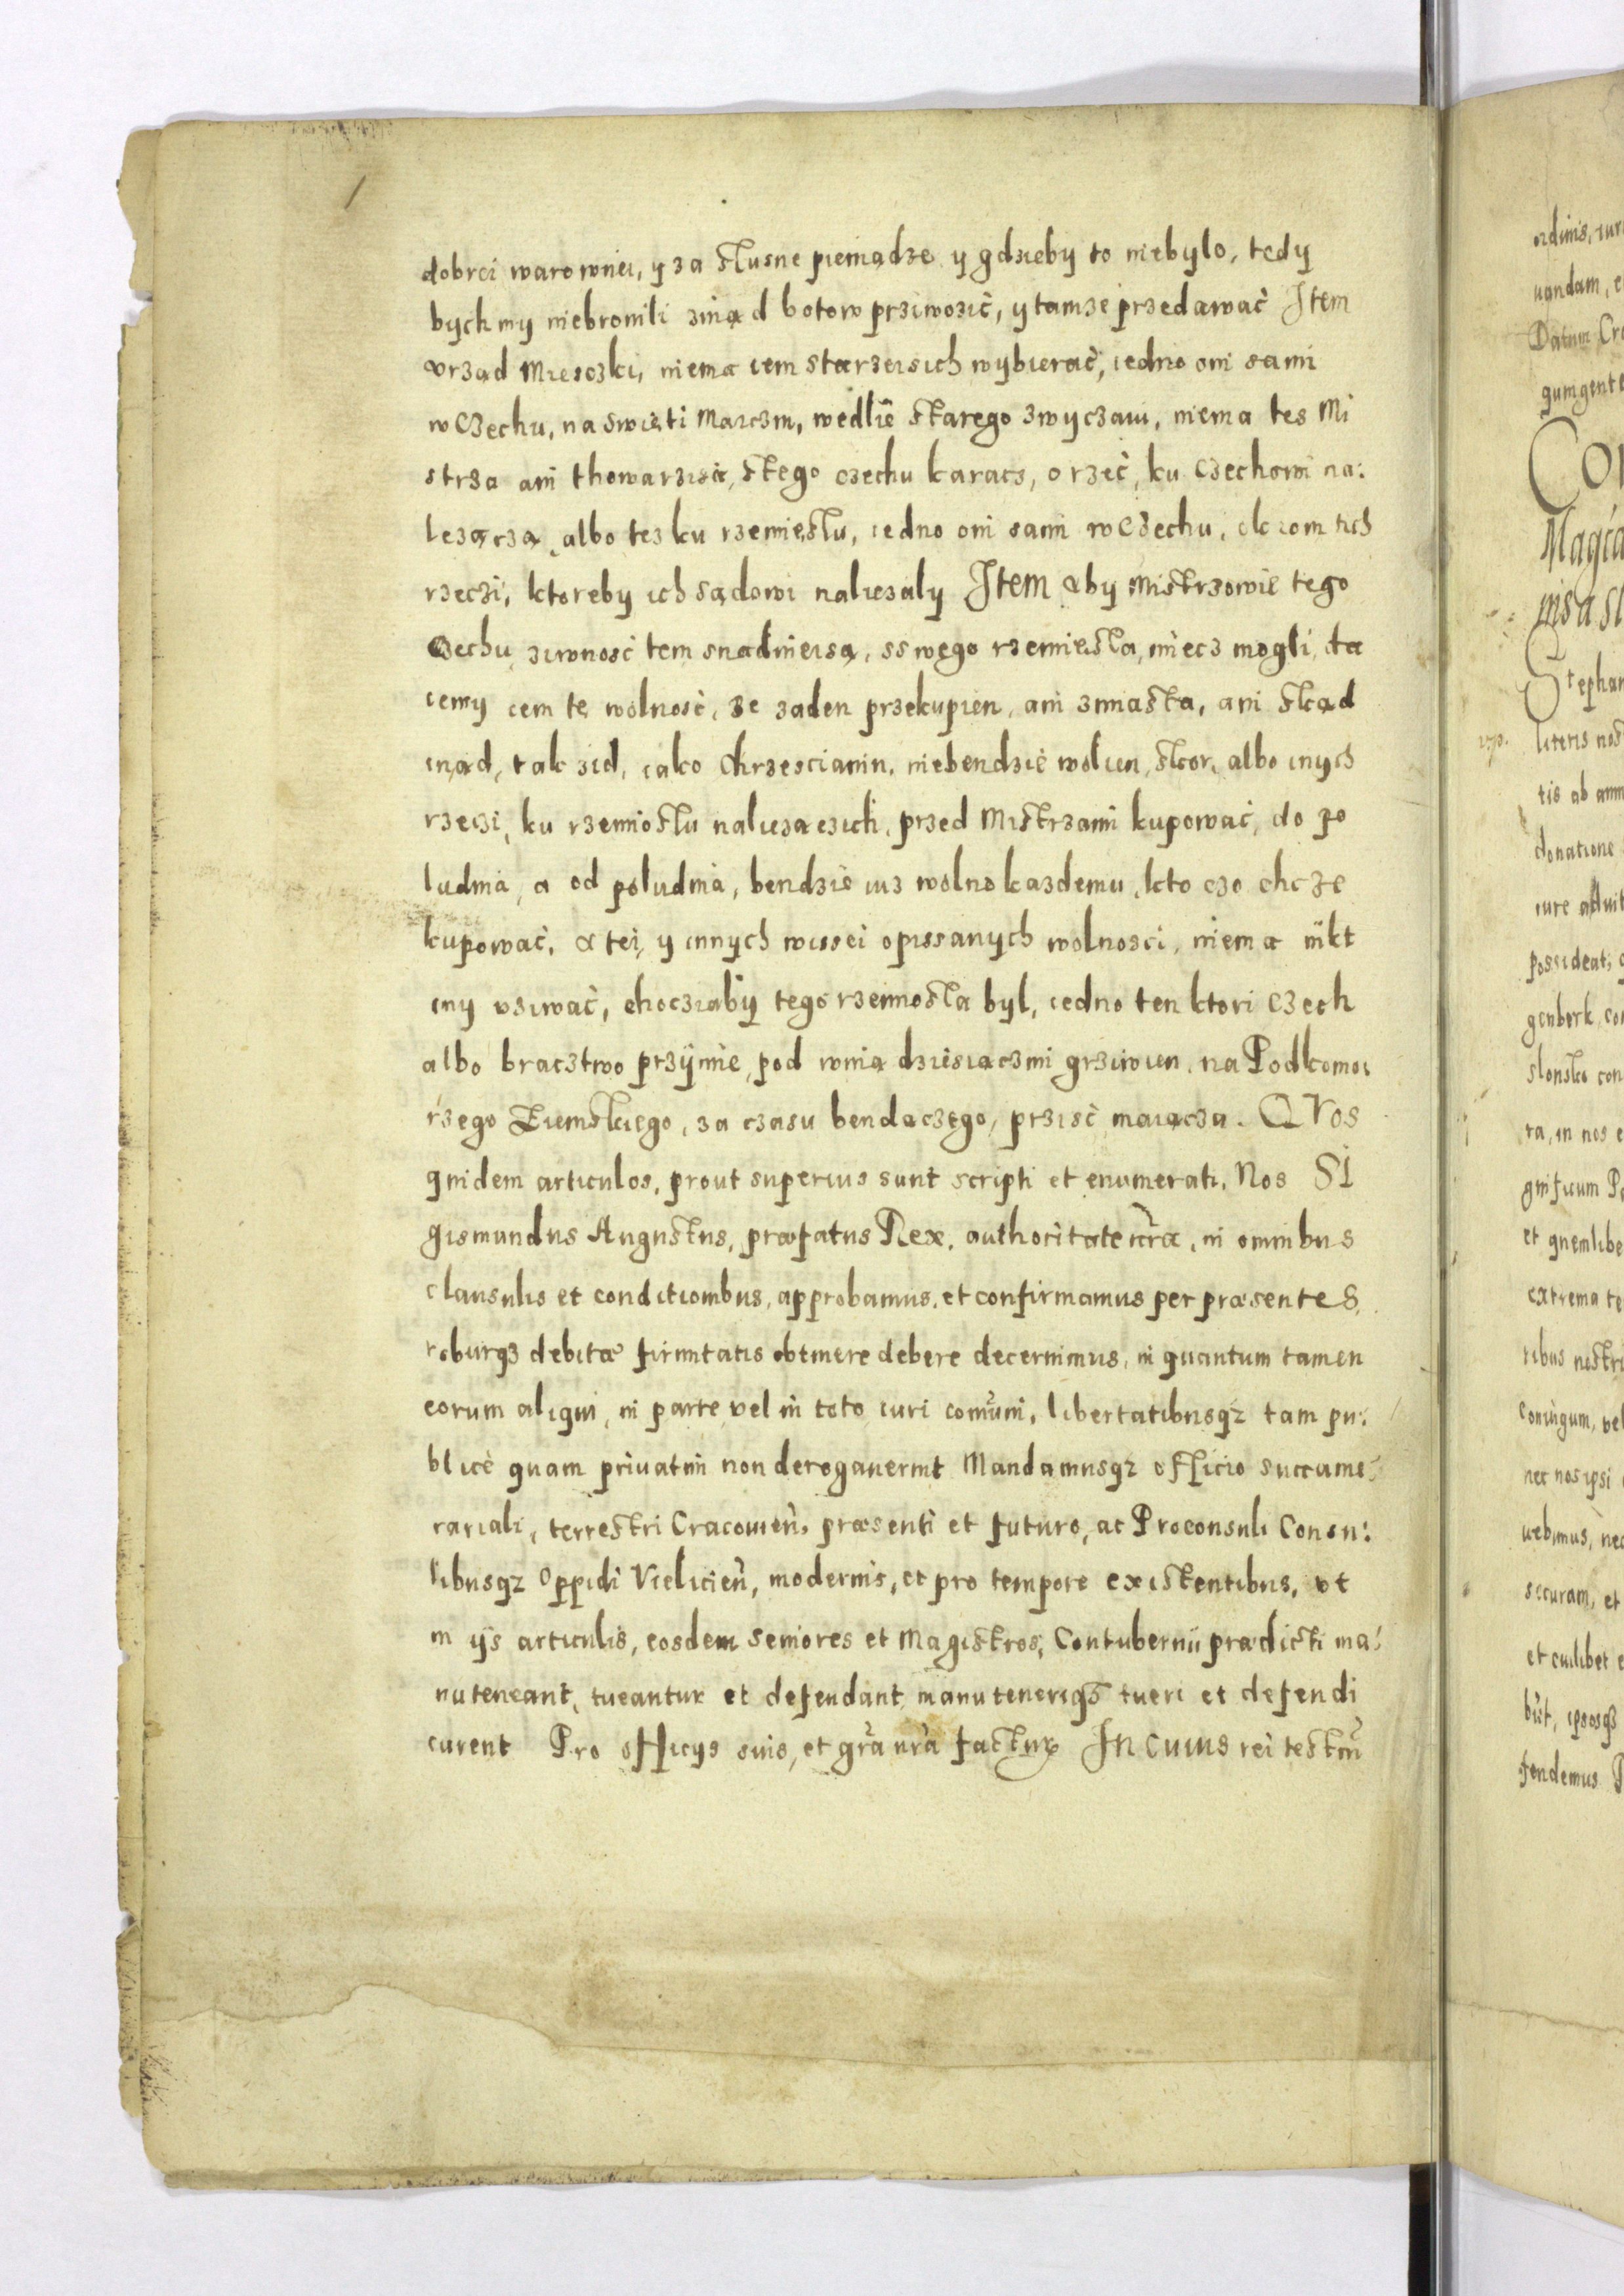 dobrei warownei, y za slusne pieniądze y gdzieby to niebylo, tedy
bychmy niebronili zinąd botow prziwozić, y tamze przedawać Item
vrząd Miesczki, niema iem starzeisich wybierać, iedno oni sami
w Czechu, na Swięti Marczin, wedlie starego zwyczaiu, niema tes Mi
strza ani thowarzisia, stego czechu karacz, o rzeć, ku Czechowi na:
lezączą, albo tez ku rzemięslu, iedno oni sami w Czechu, okrom tich
rzeczi, ktoreby ich sądowi naliezaly Item aby Mistrzowie tego
Czechu ziwnosć tem snadnieisą, sswego rzemiesla, miecz mogli, da
iemy iem tę wolnosć, ze zaden przekupien, ani zmiasta, ani skąd
inąd, tak zid, iako Chrzescianin, niebendzie wolien, skor, albo inych
rzeczi, ku rzemioslu naliezaczich, przed Mistrzami kupować, do po
ludnia, a od poludnia, bendzie iuz wolno kazdemu, kto czo chcze
kupować, a tei, y innych wissei opissanych wolnosci, niema nikt
iny vziwać, choczaby tego rzemiosla byl, iedno ten ktori Czech
albo bracztwo prziimie, pod winą dziesiączmi grziwien, na Podkomo:
rzego Ziemskiego, za czasu bendączego, prziść maiączą. QVos
quidem articulos, prout superius sunt scripti et enumerati, Nos SI
gismundus Augustus, præfatus Rex, authoritate nr̃a, in omnibus
clausulis et conditionibus, approbamus, et confirmamus per præsentes,
roburqз debitæ firmitatis obtinere debere decernimus, in quantum tamen
eorum aliqui, in parte vel in toto iuri comũni, libertatibusqз tam pu:
blicè quam priuatim non derogauerint Mandamusqз officio succame:
rariali, terrestri Cracouień, præsenti et futuro, ac Proconsuli Consu:
libusqз Oppidi Vielicień, modernis, et pro tempore existentibus, vt
in ijs articulis, eosdem seniores et Magistros, Contubernii prædicti ma:
nuteneant, tueantur et defendant, manuteneriqз tueri et defendi
curent Pro officys suis, et gr̃a nr̃a facturi In cuius rei testm̃